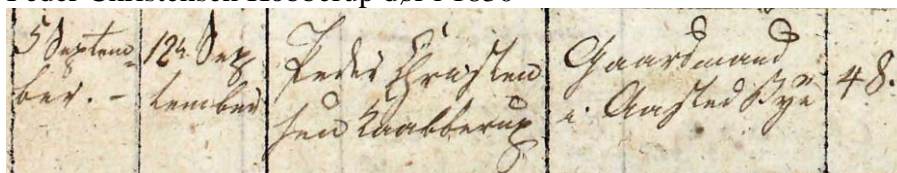 5 Septem=
ber. -
12te Sep
tember
Peder Christen
sen Kaabberup
Gaardmand
i Aasted Bye
48.